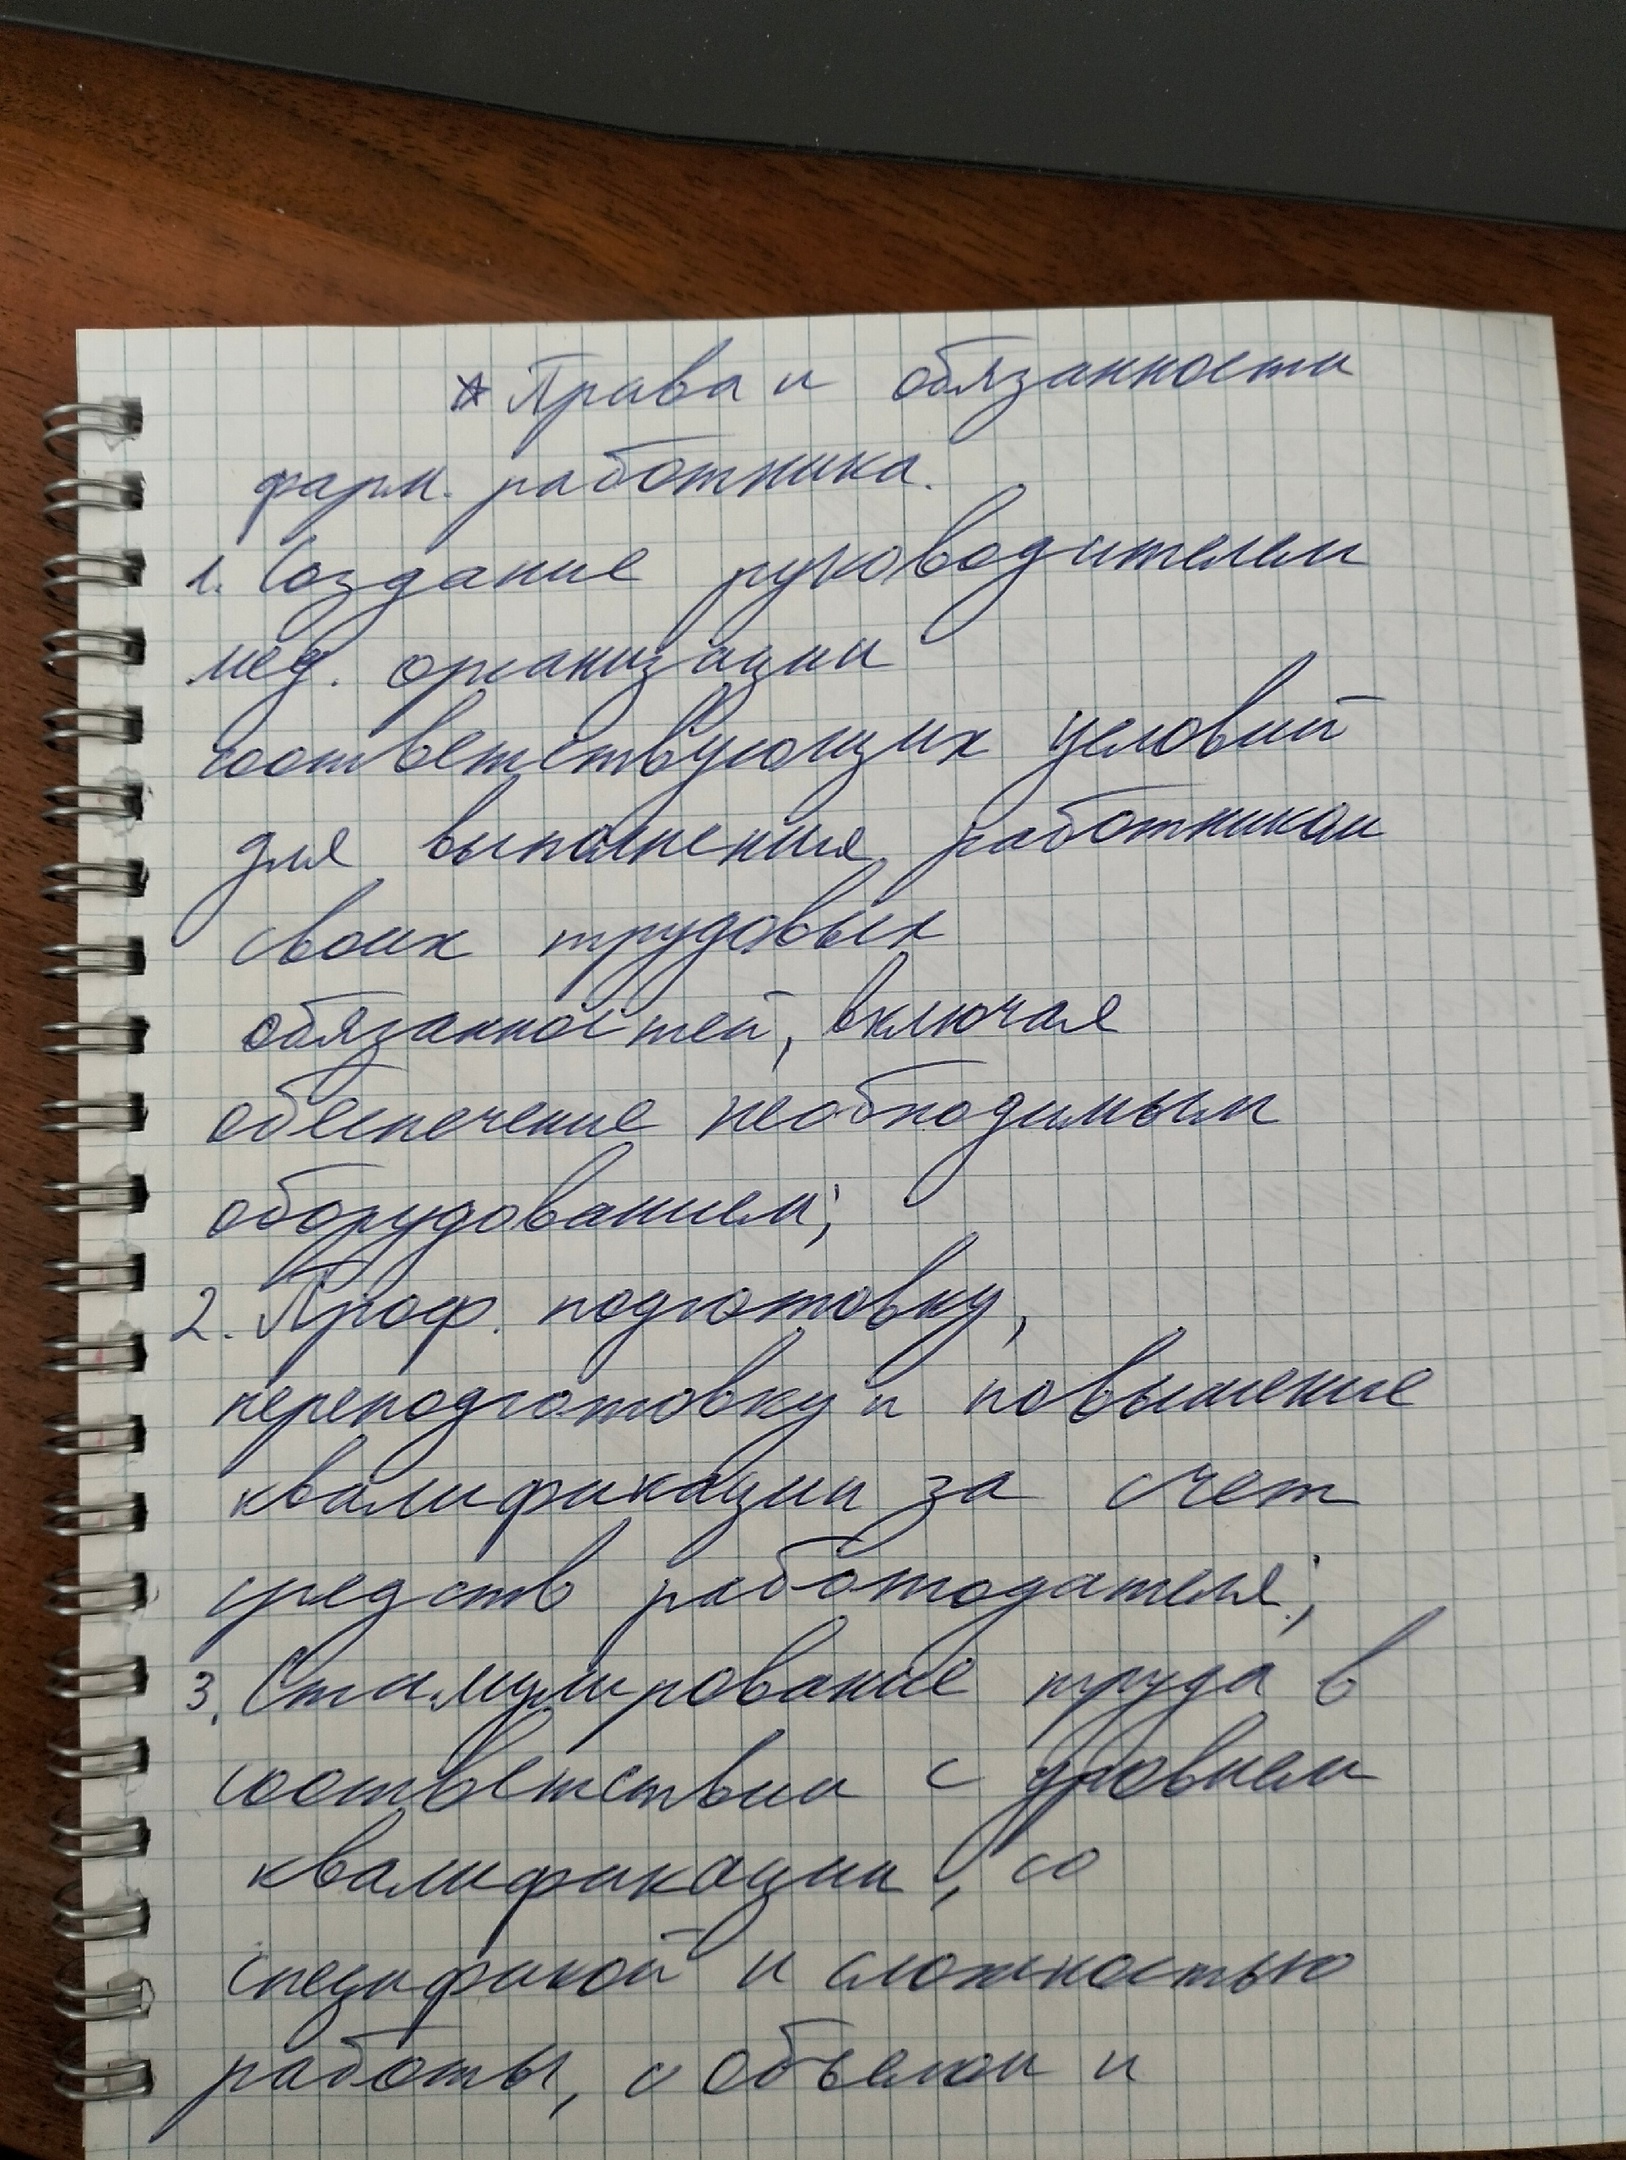 ☆ Права и обязанности
фарм. работника.
1. Создание руководителем
мед. организации
соответствующих условий
для выполнения работником
своих трудовых
обязанностей, включая
обеспечение необходимым
оборудованием;
2. Проф. подготовку,
переподготовку и повышение
квалификации за счет
средств работодателя;
3. Стимулирование труда в
соответствии с уровнем
квалификации, со
спецификой и сложностью
работы, с объемом и